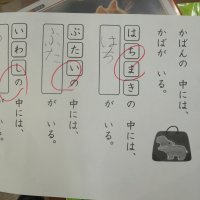 かばんの 中には、
かばが いる。
はちまきの 中には、
が いる。
ぶたいの 中には、
ぶた が いる。
いわしの 中には、
が いる。